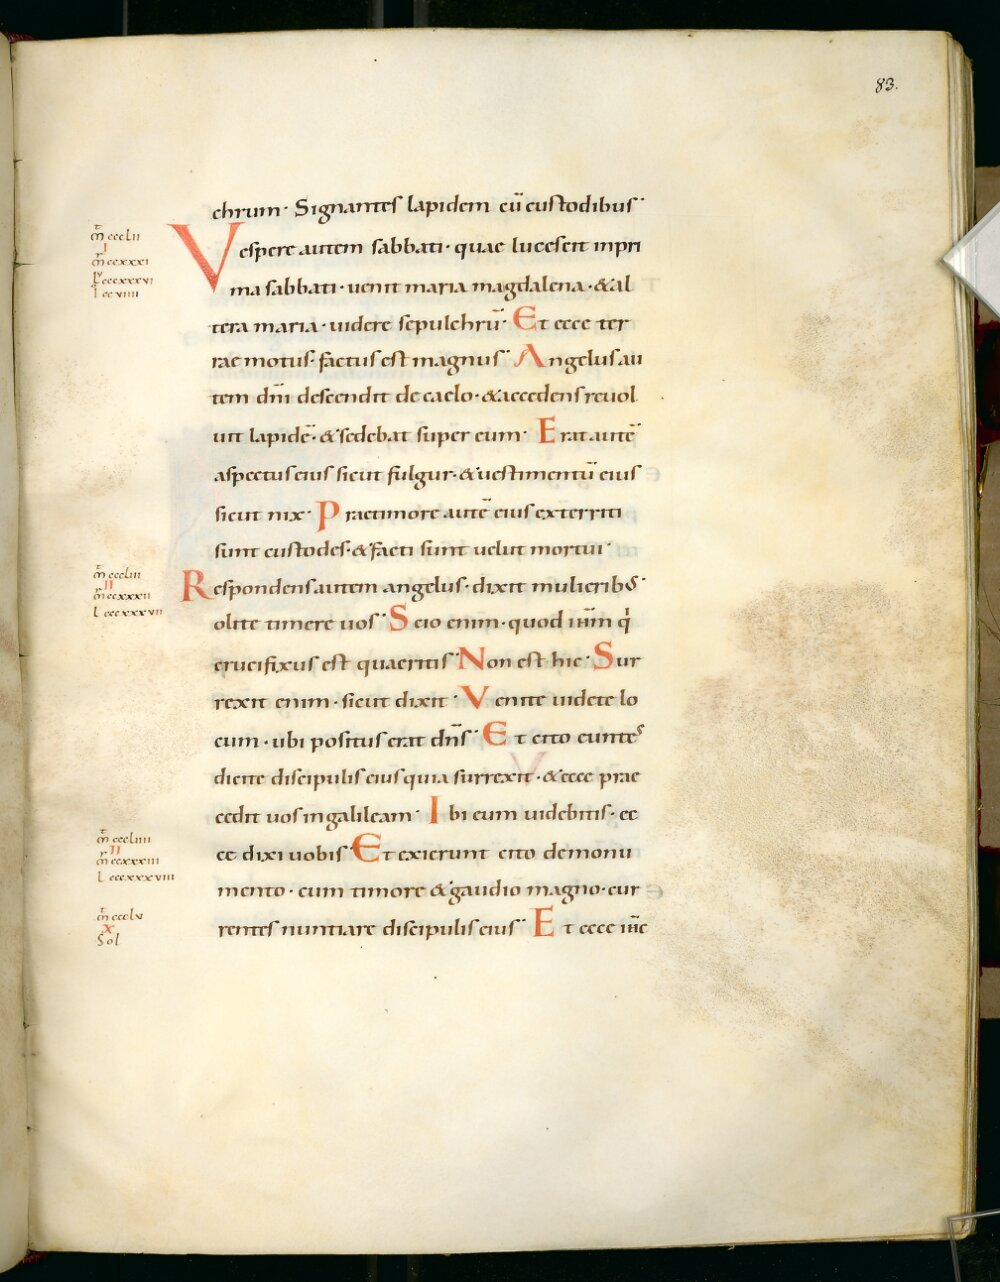 83.
chrum· Signantes lapidem cū custodibus·
m̄ cccLII
I
m̄ ccxxxI
L cccxxxvI
I ccvIIII
Vespere autem sabbati· quae lucescit inpri
ma sabbati· uenit maria magdalena·&al
tera maria· uidere sepulchrū· Et ecce ter
rae motus· factus est magnus· Angelus au
tem dn̄i descendit de caelo·&accedens reuol
uit lapidē·&sedebat super eum· Erat autē
aspectus eius sicut fulgur·&uestimentū eius
sicut nix· Prae timore autē eius exterriti
sunt custodes·&facti sunt uelut mortui·
m̄ cccLIII
II
m̄ ccxxxII
L cccxxxvII
Respondens autem angelus· dixit mulierib;·
olite timere uos· Scio enim· quod ih̄m q
crucifixus est quaeritis· Non est hic· Sur
rexit enim· sicut dixit· Venite uidete lo
cum· ubi positus erat dn̄s· Et cito euntes
dicite discipulis eius quia surrexit·&ecce prae
cedit uos in galileam· Ibi eum uidebitis· ec
m̄ cccLIIII
II
m̄ ccxxxIII
L cccxxxvIII
ce dixi uobis· Et exierunt cito de monu
mento· cum timore & gaudio magno· cur
m̄ cccLv
x
Sol
rentes nuntiare discipulis eius· Et ecce ih̄c